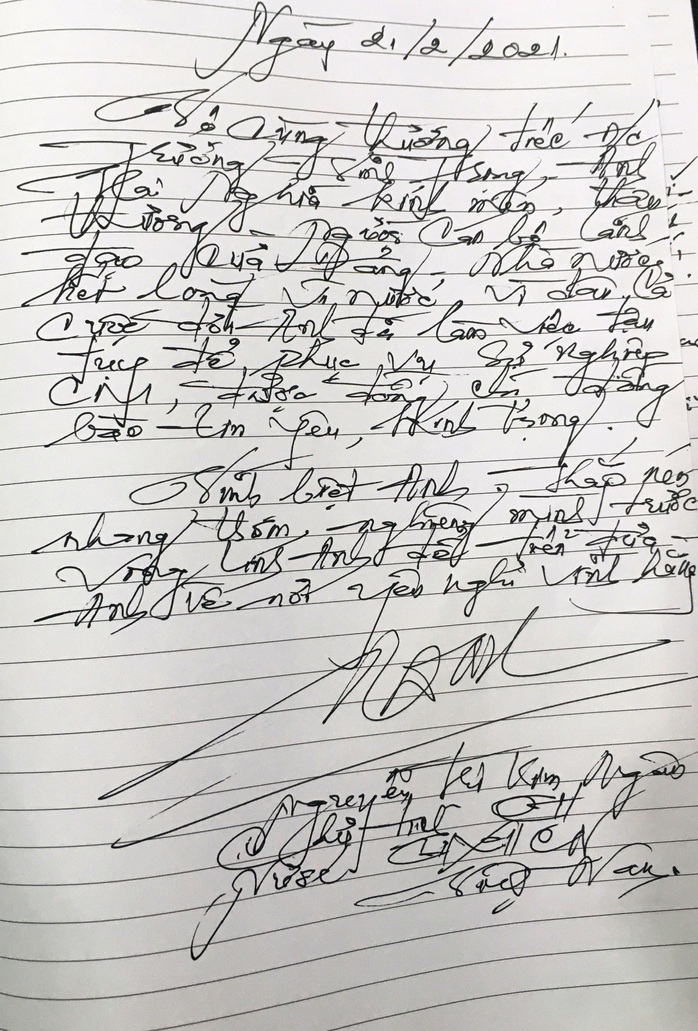 Ngày 21/2/2021.
Vô cùng thương tiếc đ/c
Trương Vĩnh Trọng, Anh
Hai Nghĩa kính mến, thân
thương - Người cán bộ lãnh
đạo của Đảng, Nhà nước
hết lòng vì nước, vì dân, cả
cuộc đời Anh đã làm việc tận
tụy để phục vụ sự nghiệp
CM, được đồng chí đồng
bào tin yêu, kính trọng.
Vĩnh biệt Anh, thắp nén
nhang thơm, nghiêng mình trước
vong linh Anh để tiễn đưa
Anh về nơi yên nghỉ vĩnh hằng
Nguyễn Thị Kim Ngân
Chủ tịch QH
nước CHXHCN
Việt Nam.